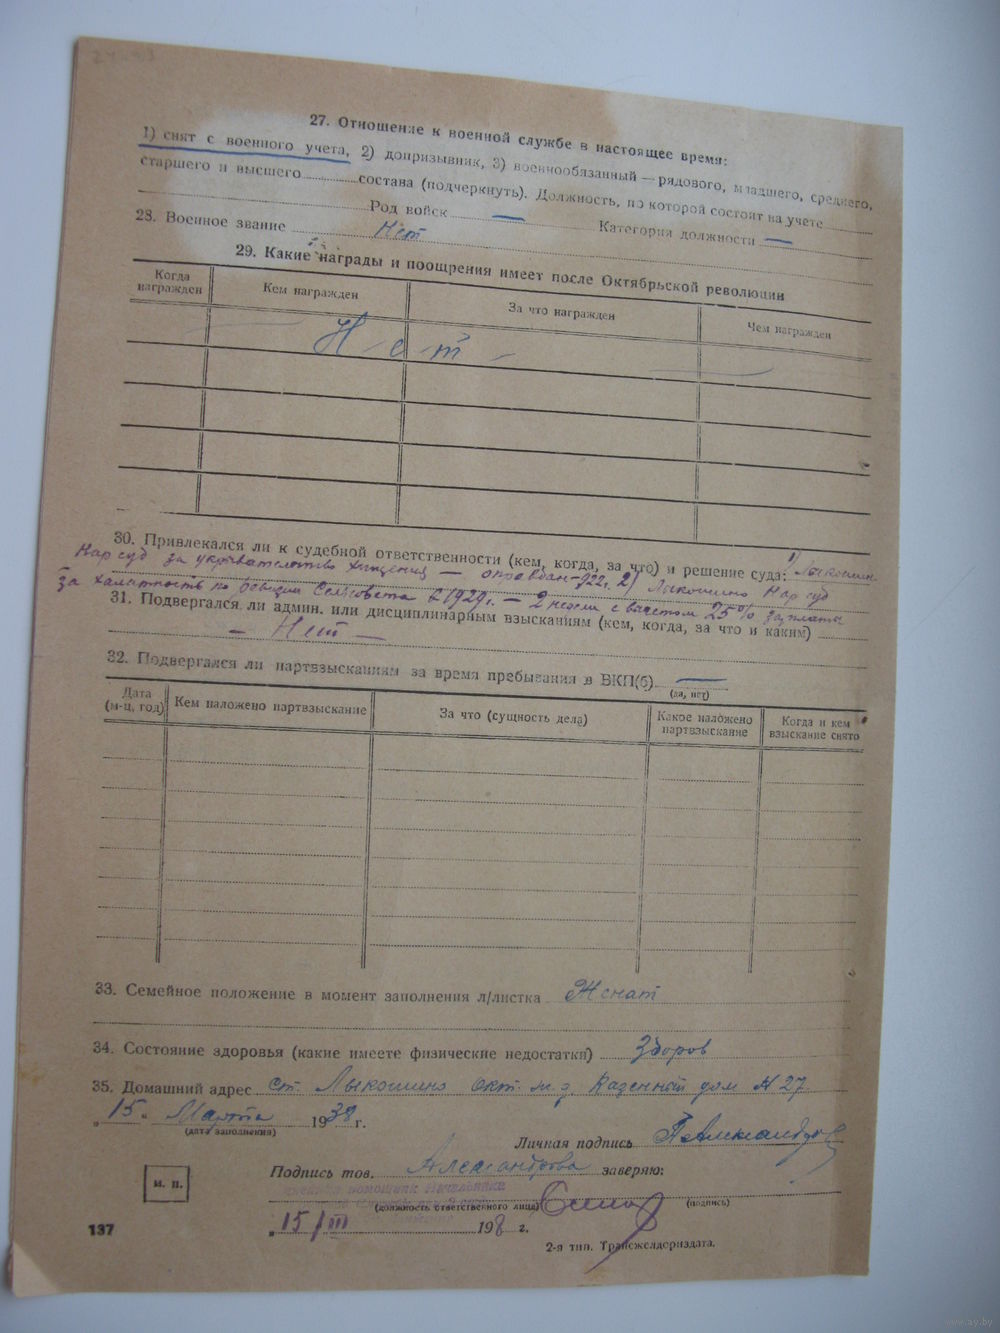 27. Отношение к военной службе в настоящее время:
1) снят с военного учета, 2) допризывник, 3) военнообязанный — рядового, младшего, среднего,
старшего и высшего состава (подчеркнуть). Должность, по которой состоит на учете
Род войск — Категория должности —
28. Военное звание Нет
29. Какие награды и поощрения имеет после Октябрьской революции
Когда награжден Кем награжден За что награжден Чем награжден
Нет
30. Привлекался ли к судебной ответственности (кем, когда, за что) и решение суда: 1) Лыкошин.
Нар суд за укрывательство хищения — оправдан—922 г. 2) Лыкошино Нар суд
за халатность по ревизии Сельсовета в 1929 г. — 2 недели с вычетом 25% зарплаты
31. Подвергался ли админ. или дисциплинарным взысканиям (кем, когда, за что и каким)
— Нет —
32. Подвергался ли партвзысканиям за время пребывания в ВКП(б) —
(да, нет)
Дата (м-ц, год) Кем наложено партвзыскание За что (сущность дела) Какое наложено партвзыскание Когда и кем взыскание снято
33. Семейное положение в момент заполнения л/листка Женат
34. Состояние здоровья (какие имеете физические недостатки) Здоров
35. Домашний адрес Ст. Лыкошино Окт. ж. д. Казенный дом № 27
„15“ Марта 1938 г.
(дата заполнения)
Личная подпись П Александров
Подпись тов. Александрова заверяю:
м. п.
помощник Начальника
(должность ответственного лица) (подпись)
„15/III 1938 г.
137
2-я тип. Трансжелдориздата.
www.ay.by